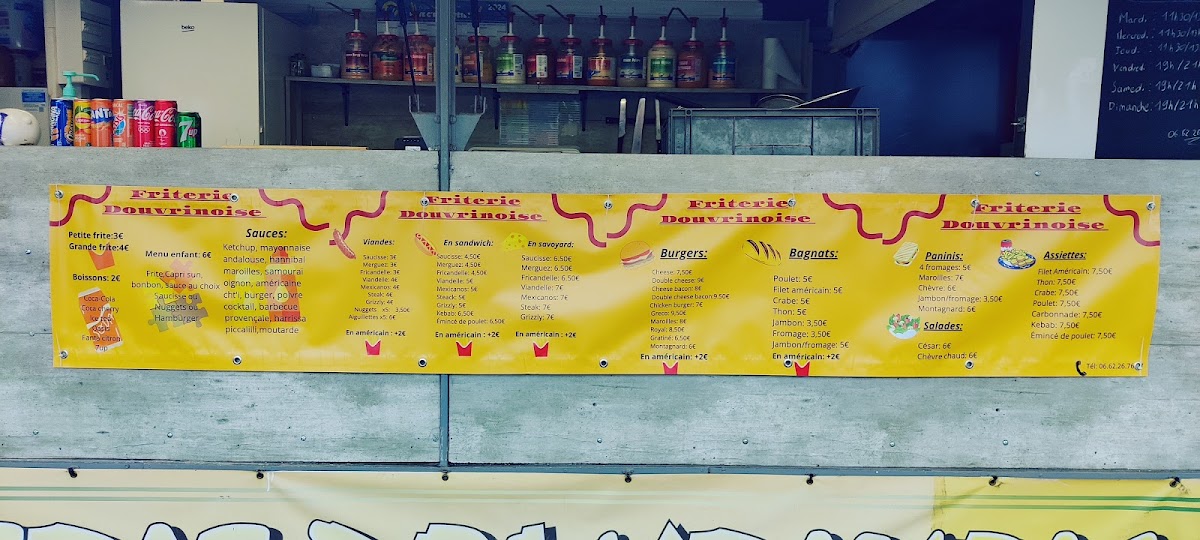 beko
2024
Mardi : 11h30/1
Mercred. : 11h30/13
Jeud. : 11h30/1
Vendred. 19h/21
Samedi : 19h/21
Dimanche : 19h/21
06.62.26
Friterie
Douvrinoise
Petite frite:3€
Grande frite:4€
Boissons: 2€
Coca-Cola
Coca cherry
Ice tea
Oasis
Fanta citron
7up
Menu enfant: 6€
Frite,Capri sun,
bonbon, sauce au choix
Saucisse ou
Nuggets ou
Hamburger
Sauces:
Ketchup, mayonnaise
andalouse, hannibal
maroilles, samourai
oignon, américaine
chti, burger, poivre
cocktail, barbecue
provençale, harrissa
piccalilli,moutarde
Friterie
Douvrinoise
Viandes:
Saucisse: 3€
Merguez: 3€
Fricandelle: 3€
Viandelle: 4€
Mexicanos: 4€
Steak: 4€
Grizzly: 4€
Nuggets x5: 3,50€
Aiguillettes x5: 6€
En américain : +2€
En sandwich:
Saucisse: 4,50€
Merguez: 4,50€
Fricandelle: 4,50€
Viandelle: 5€
Mexicanos: 5€
Steack: 5€
Grizzly: 5€
Kebab: 6,50€
Émincé de poulet: 6,50€
En américain : +2€
En savoyard:
Saucisse: 6,50€
Merguez: 6,50€
Fricandelle: 6,50€
Viandelle: 7€
Mexicanos: 7€
Steak: 7€
Grizzly: 7€
En américain : +2€
Friterie
Douvrinoise
Burgers:
Cheese: 7,50€
Double cheese: 9€
Cheese bacon: 8€
Double cheese bacon:9,50€
Chicken burger: 7€
Greco: 9,50€
Maroilles: 8€
Royal: 8,50€
Gratiné: 6,50€
Montagnard: 6€
En américain: +2€
Bagnats:
Poulet: 5€
Filet américain: 5€
Crabe: 5€
Thon: 5€
Jambon: 3,50€
Fromage: 3,50€
Jambon/fromage: 5€
En américain: +2€
Friterie
Douvrinoise
Paninis:
4 fromages: 5€
Maroilles: 7€
Chèvre: 6€
Jambon/fromage: 3,50€
Montagnard: 6€
Salades:
César: 6€
Chèvre chaud: 6€
Assiettes:
Filet Américain: 7,50€
Thon: 7,50€
Crabe: 7,50€
Poulet: 7,50€
Carbonnade: 7,50€
Kebab: 7,50€
Emincé de poulet: 7,50€
Tél: 06.62.26.76